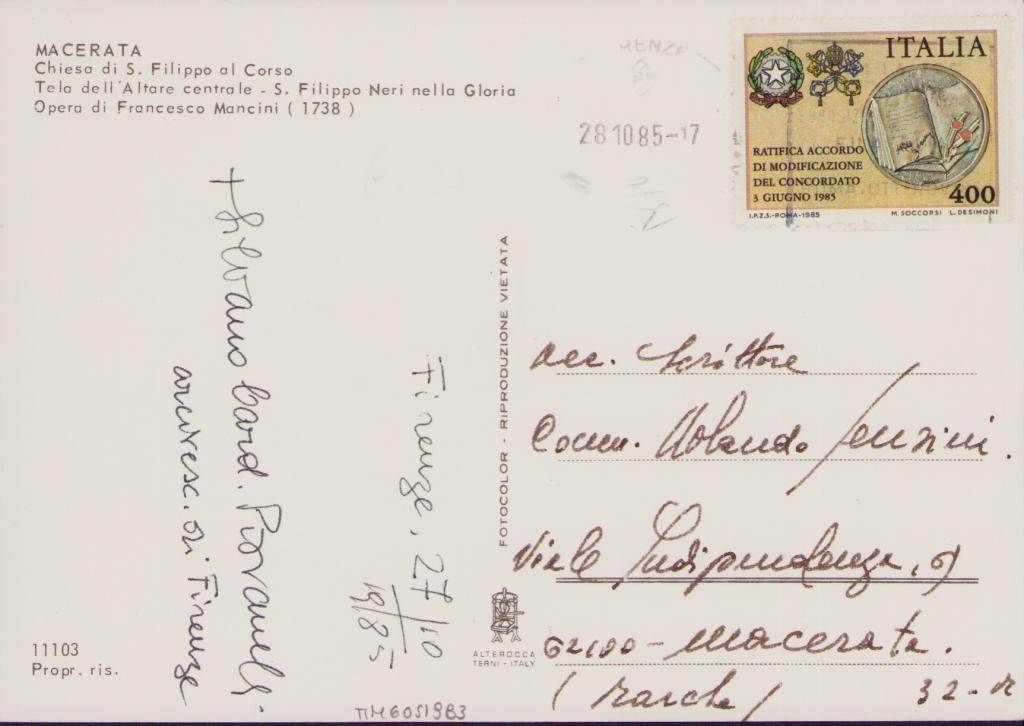 MACERATA
Chiesa di S. Filippo al Corso
Tela dell'Altare centrale - S. Filippo Neri nella Gloria
Opera di Francesco Mancini ( 1738 )
28 10 85-17
ITALIA
RATIFICA ACCORDO
DI MODIFICAZIONE
DEL CONCORDATO
3 GIUGNO 1985
400
I.P.Z.S.-ROMA-1985
M. SOCCORSI L. DESIMONI
+ Silvano Card. Piovanelli
arcivesc. di Firenze
Firenze, 27/10
19/85
FOTOCOLOR - RIPRODUZIONE VIETATA
Scrittore
Comm. Rolando Sensini.
Viale Indipendenza,
62100 - Macerata.
(Marche)
32-
ALTEROCCA
TERNI - ITALY
11103
Propr. ris.
TM6051983